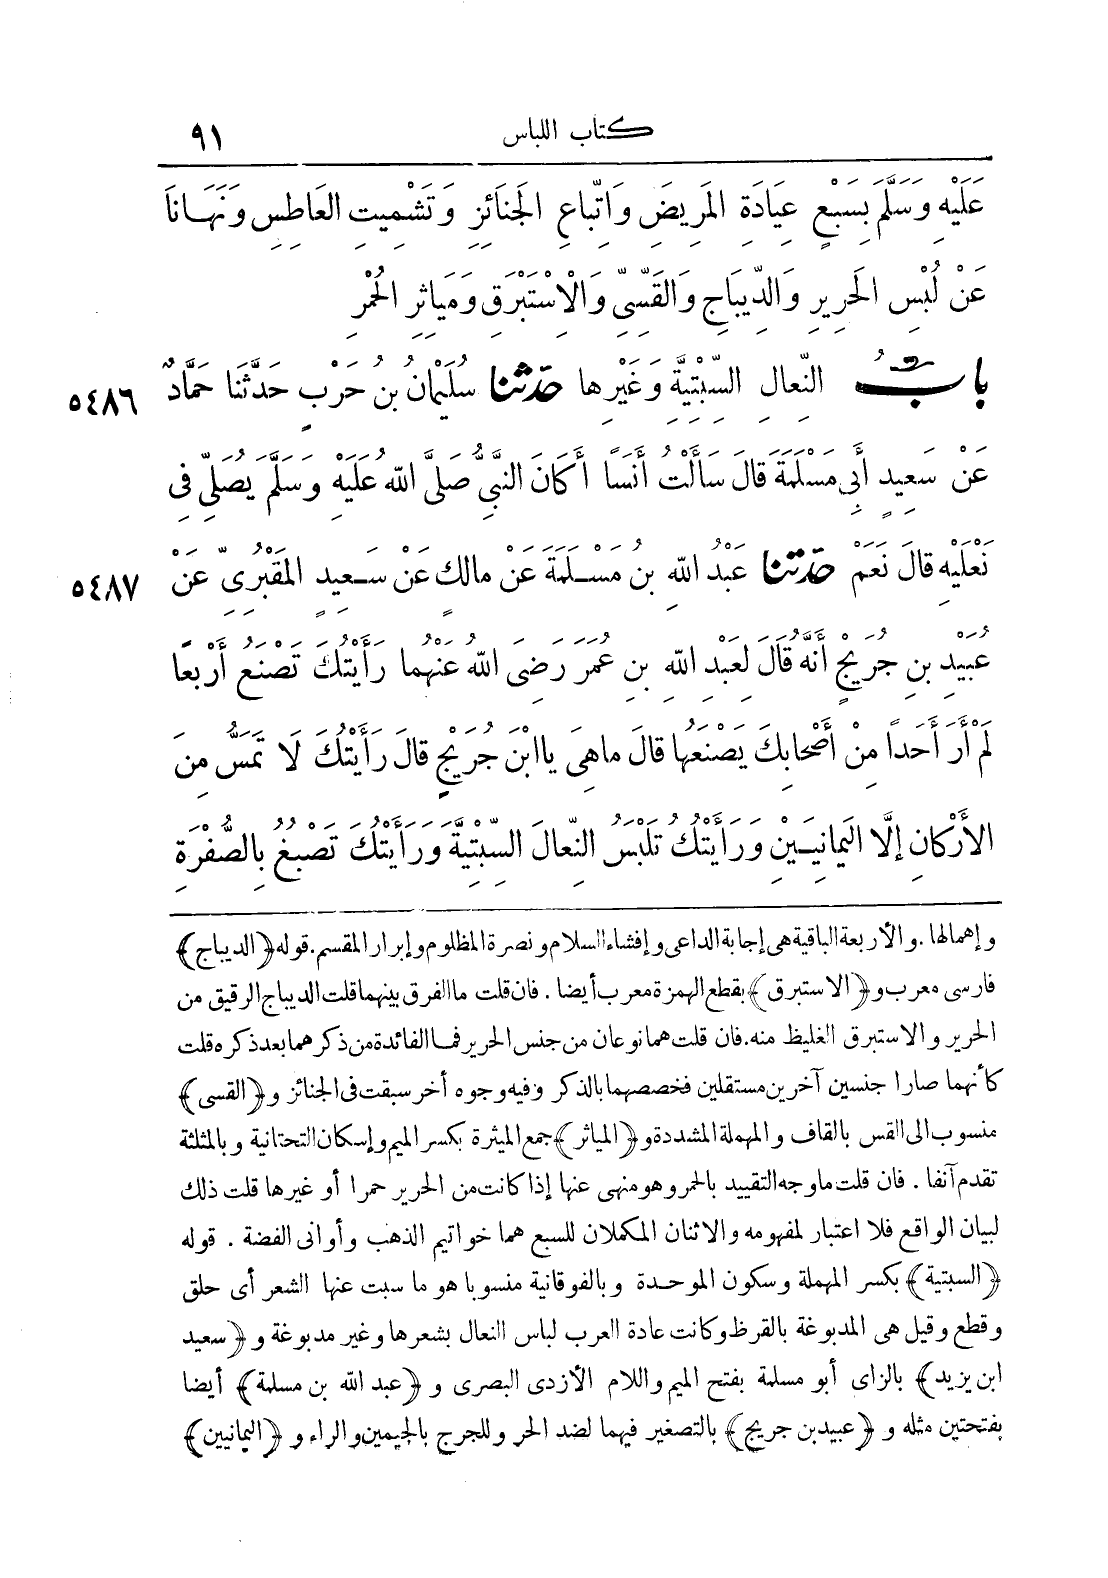 كتاب اللباس ٩١
عَلَيْهِ وَسَلَّمَ بِسَبْعٍ عِيَادَةِ المَرِيضِ وَاتِّبَاعِ الجَنَائِزِ وَتَشْمِيتِ العَاطِسِ وَنَهَانَا
عَنْ لُبْسِ الحَرِيرِ وَالدِّيبَاجِ وَالقَسِّيِّ وَالْاِسْتَبْرَقِ وَمَيَاثِرِ الحُمْرِ
بابُ النِّعَالِ السِّبْتِيَّةِ وَغَيْرِها حَدَّثَنا سُلَيْمَانُ بنُ حَرْبٍ حَدَّثَنَا حَمَّادٌ ٥٤٨٦
عَنْ سَعِيدٍ أَبِي مَسْلَمَةَ قالَ سَأَلْتُ أَنَساً أَكَانَ النَّبِيُّ صَلَّى اللهُ عَلَيْهِ وَسَلَّمَ يُصَلِّي فِي
نَعْلَيْهِ قالَ نَعَمْ حَدَّثَنا عَبْدُ اللهِ بنُ مَسْلَمَةَ عَنْ مالِكٍ عَنْ سَعِيدٍ المَقْبُرِيِّ عَنْ ٥٤٨٧
عُبَيْدِ بنِ جُرَيْجٍ أَنَّهُ قَالَ لِعَبْدِ اللهِ بنِ عُمَرَ رَضِيَ اللهُ عَنْهُما رَأَيْتُكَ تَصْنَعُ أَرْبَعًا
لَمْ أَرَ أَحَداً مِنْ أَصْحابِكَ يَصْنَعُها قالَ ماهِيَ يا ابْنَ جُرَيْجٍ قالَ رَأَيْتُكَ لَا تَمَسُّ مِنَ
الأَرْكانِ إلَّا اليَمَانِيَيْنِ وَرَأَيْتُكَ تَلْبَسُ النِّعالَ السِّبْتِيَّةَ وَرَأَيْتُكَ تَصْبُغُ بِالصُّفْرَةِ
وإهمالها . والأربعة الباقية هى إجابة الداعى وإفشاء السلام ونصرة المظلوم وإبرار المقسم. قوله ﴿الديباج﴾
فارسى معرب و﴿الاستبرق﴾ بقطع الهمزة معرب أيضا . فان قلت ما الفرق بينهما قلت الديباج الرقيق من
الحرير والاستبرق الغليظ منه. فان قلت هما نوعان من جنس الحرير فما الفائدة من ذكرهما بعد ذكره قلت
كأنهما صارا جنسين آخرين مستقلين فخصصهما بالذكر وفيه وجوه أخر سبقت فى الجنائز و﴿القسى﴾
منسوب الى القس بالقاف والمهملة المشددة و﴿المياثر﴾ جمع الميثرة بكسر الميم وإسكان التحتانية وبالمثلثة
تقدم آنفا . فان قلت ما وجه التقييد بالحمر وهو منهى عنها إذا كانت من الحرير حمرا أو غيرها قلت ذلك
لبيان الواقع فلا اعتبار لمفهومه والاثنان المكملان للسبع هما خواتيم الذهب وأوانى الفضة . قوله
﴿السبتية﴾ بكسر المهملة وسكون الموحدة وبالفوقانية منسوبا هو ما سبت عنها الشعر أى حلق
وقطع وقيل هى المدبوغة بالقرظ وكانت عادة العرب لباس النعال بشعرها وغير مدبوغة و﴿سعيد
ابن يزيد﴾ بالزاى أبو مسلمة بفتح الميم واللام الأزدى البصرى و﴿عبد الله بن مسلمة﴾ أيضا
بفتحتين مثله و﴿عبيد بن جريج﴾ بالتصغير فيهما لضد الحر وللجرج بالجيمين والراء و﴿اليمانيين﴾